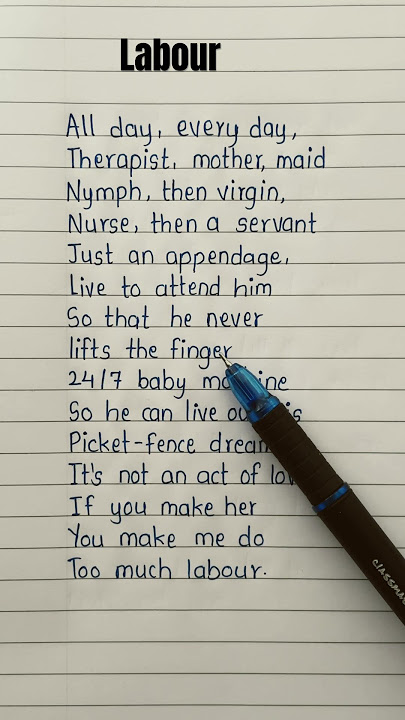 Labour
All day, every day,
Therapist, mother, maid
Nymph, then virgin,
Nurse, then a servant
Just an appendage,
Live to attend him
So that he never
lifts the finger
24/7 baby
So he can live
Picket-fence
It's not an act of
If you make her
You make me do
Too much labour.